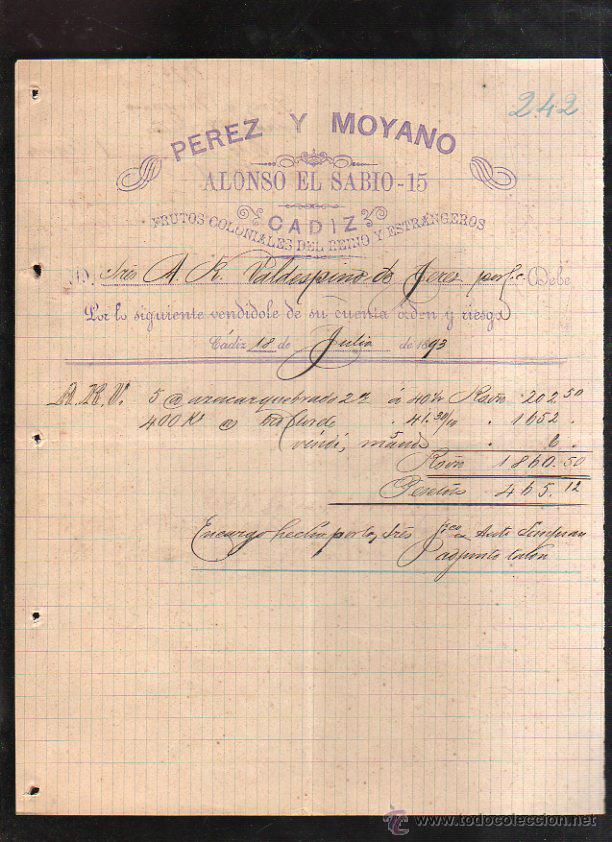 242
PEREZ Y MOYANO
ALONSO EL SABIO-15
CADIZ
FRUTOS COLONIALES DEL REINO Y ESTRANGEROS
Sres A. R. Valdespino de Jerez por f.c Debe
Por lo siguiente vendidole de su cuenta orden y riesgo
Cádiz 18 de Julio de 1893
A.R.V. 5 @ azucar quebrado 2ª á 40 Rvón 202.50
400 K @ flor de . 41.30 . 1652 .
vendí, . 6 .
Rvón 1860.50
Pesetas 465.12
Encargo hecho por los Sres
adjunto talón
www.todocoleccion.net